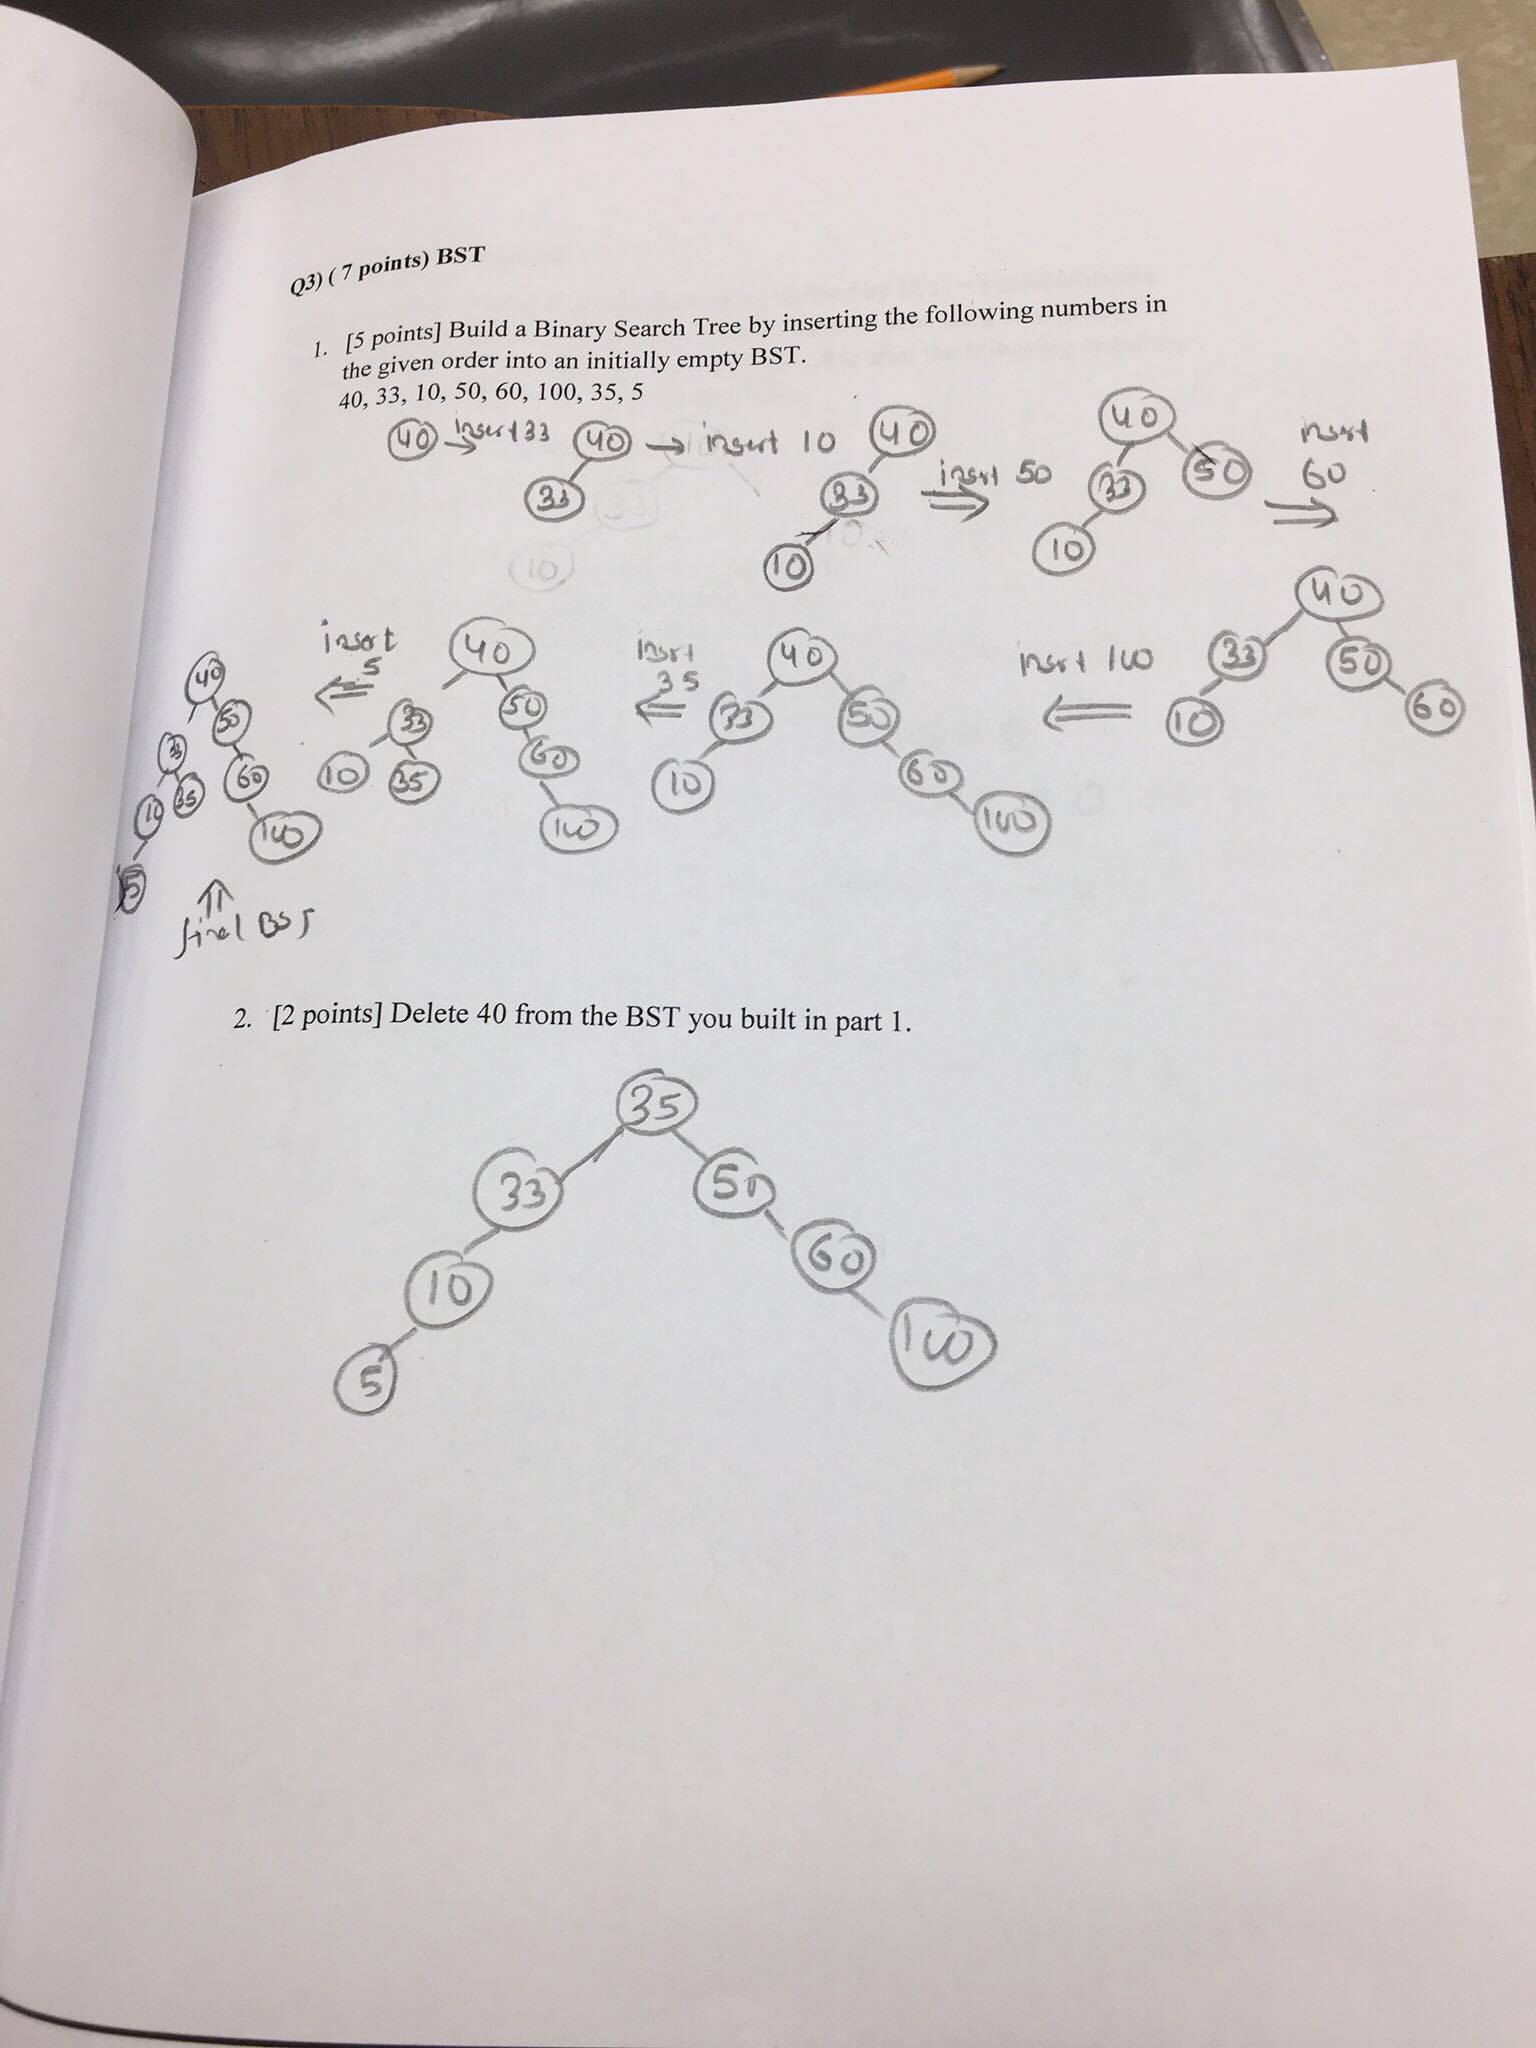 Q3) ( 7 points) BST
1. [5 points] Build a Binary Search Tree by inserting the following numbers in
the given order into an initially empty BST.
40, 33, 10, 50, 60, 100, 35, 5
40 → insert 33 40 → insert 10 40 insert 50 40 insert
33 33 33 50 60
10 10
insert 5 40 insert 35 40 insert 100 40
40 33 50 33 50 33 50
33 50 10 35 60 10 60 10 60
10 35 60 100 100
5 100
final BST
2. [2 points] Delete 40 from the BST you built in part 1.
35
33 50
10 60
5 100